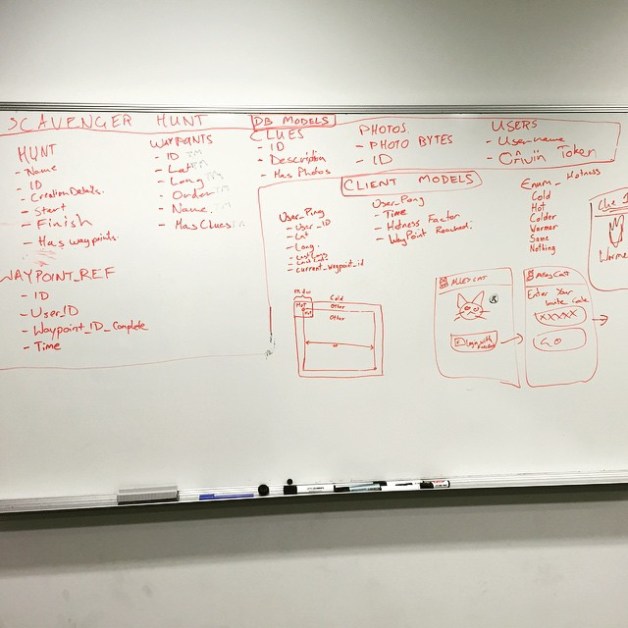 SCAVENGER HUNT
DB MODELS
HUNT
- Name
- ID
- Creation Details.
- Start
- Finish
- Has waypoints.
WAYPOINTS
- ID
- Lat
- Long
- Order
- Name
- Has Clues
CLUES
- ID
- Description
- Has Photos
PHOTOS.
- PHOTO BYTES
- ID
USERS
- User-name
Token
WAYPOINT_REF
- ID
- User_ID
- Waypoint_ID_Complete
- Time
CLIENT MODELS
User_Ping
- User_ID
- Lat
- Long
- current_waypoint_id
User_Pong
- Time
- Hotness Factor
- WayPoint Reached.
Enum_Hotness
Cold
Hot
Colder
Warmer
Same
Nothing
Cold
Other
Other
Hot
Hot
Login with
Enter Your
Invite Code
XXXXX
GO
Clue 1
Warmer